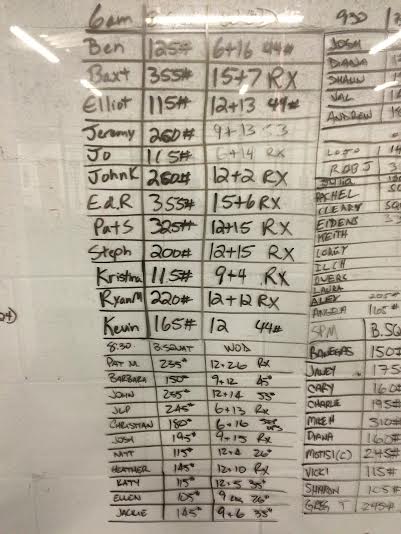 6am
Ben 125# 6+16 44#
Baxt 355# 15+7 RX
Elliot 115# 12+13 44#
Jeremy 260# 9+13
Jo 115# 6+14 RX
JohnK 260# 12+2 RX
Ed.R 355# 15+6 RX
PatS 325# 12+15 RX
Steph 200# 12+15 RX
Kristina 115# 9+4 RX
RyanM 220# 12+12 RX
Kevin 165# 12 44#
8:30 B.SQUAT WOD
PAT M. 235# 12+26 RX
BARBARA 150# 9+12 45#
JOHN 255# 12+14 53#
JLP 245# 6+13 RX
CHRISTIAN 180# 6+16
JOSH 195# 9+15 RX
MATT 115# 12+4 26#
HEATHER 145# 12+10 RX
KATY 115# 12+5 35#
ELLEN 105# 9 26#
JACKIE 145# 9+6 35#
930
JOSH
DIANA
SHAUN
VAL
ANDREW
LOJO
ROB J
JULIA
RACHEL
CLEARY
EIDENS
KEITH
COREY
ILCH
LAURA
ALEX 205#
ANGELA 105#
5PM B.SQ
BANEGAS 150
JANEY 175
CARY 160
CHARLIE 195#
MIKEH 310#
DIANA 160#
MOTISI(C) 245#
VICKI 115#
SHARON 105#
GREG T 245#